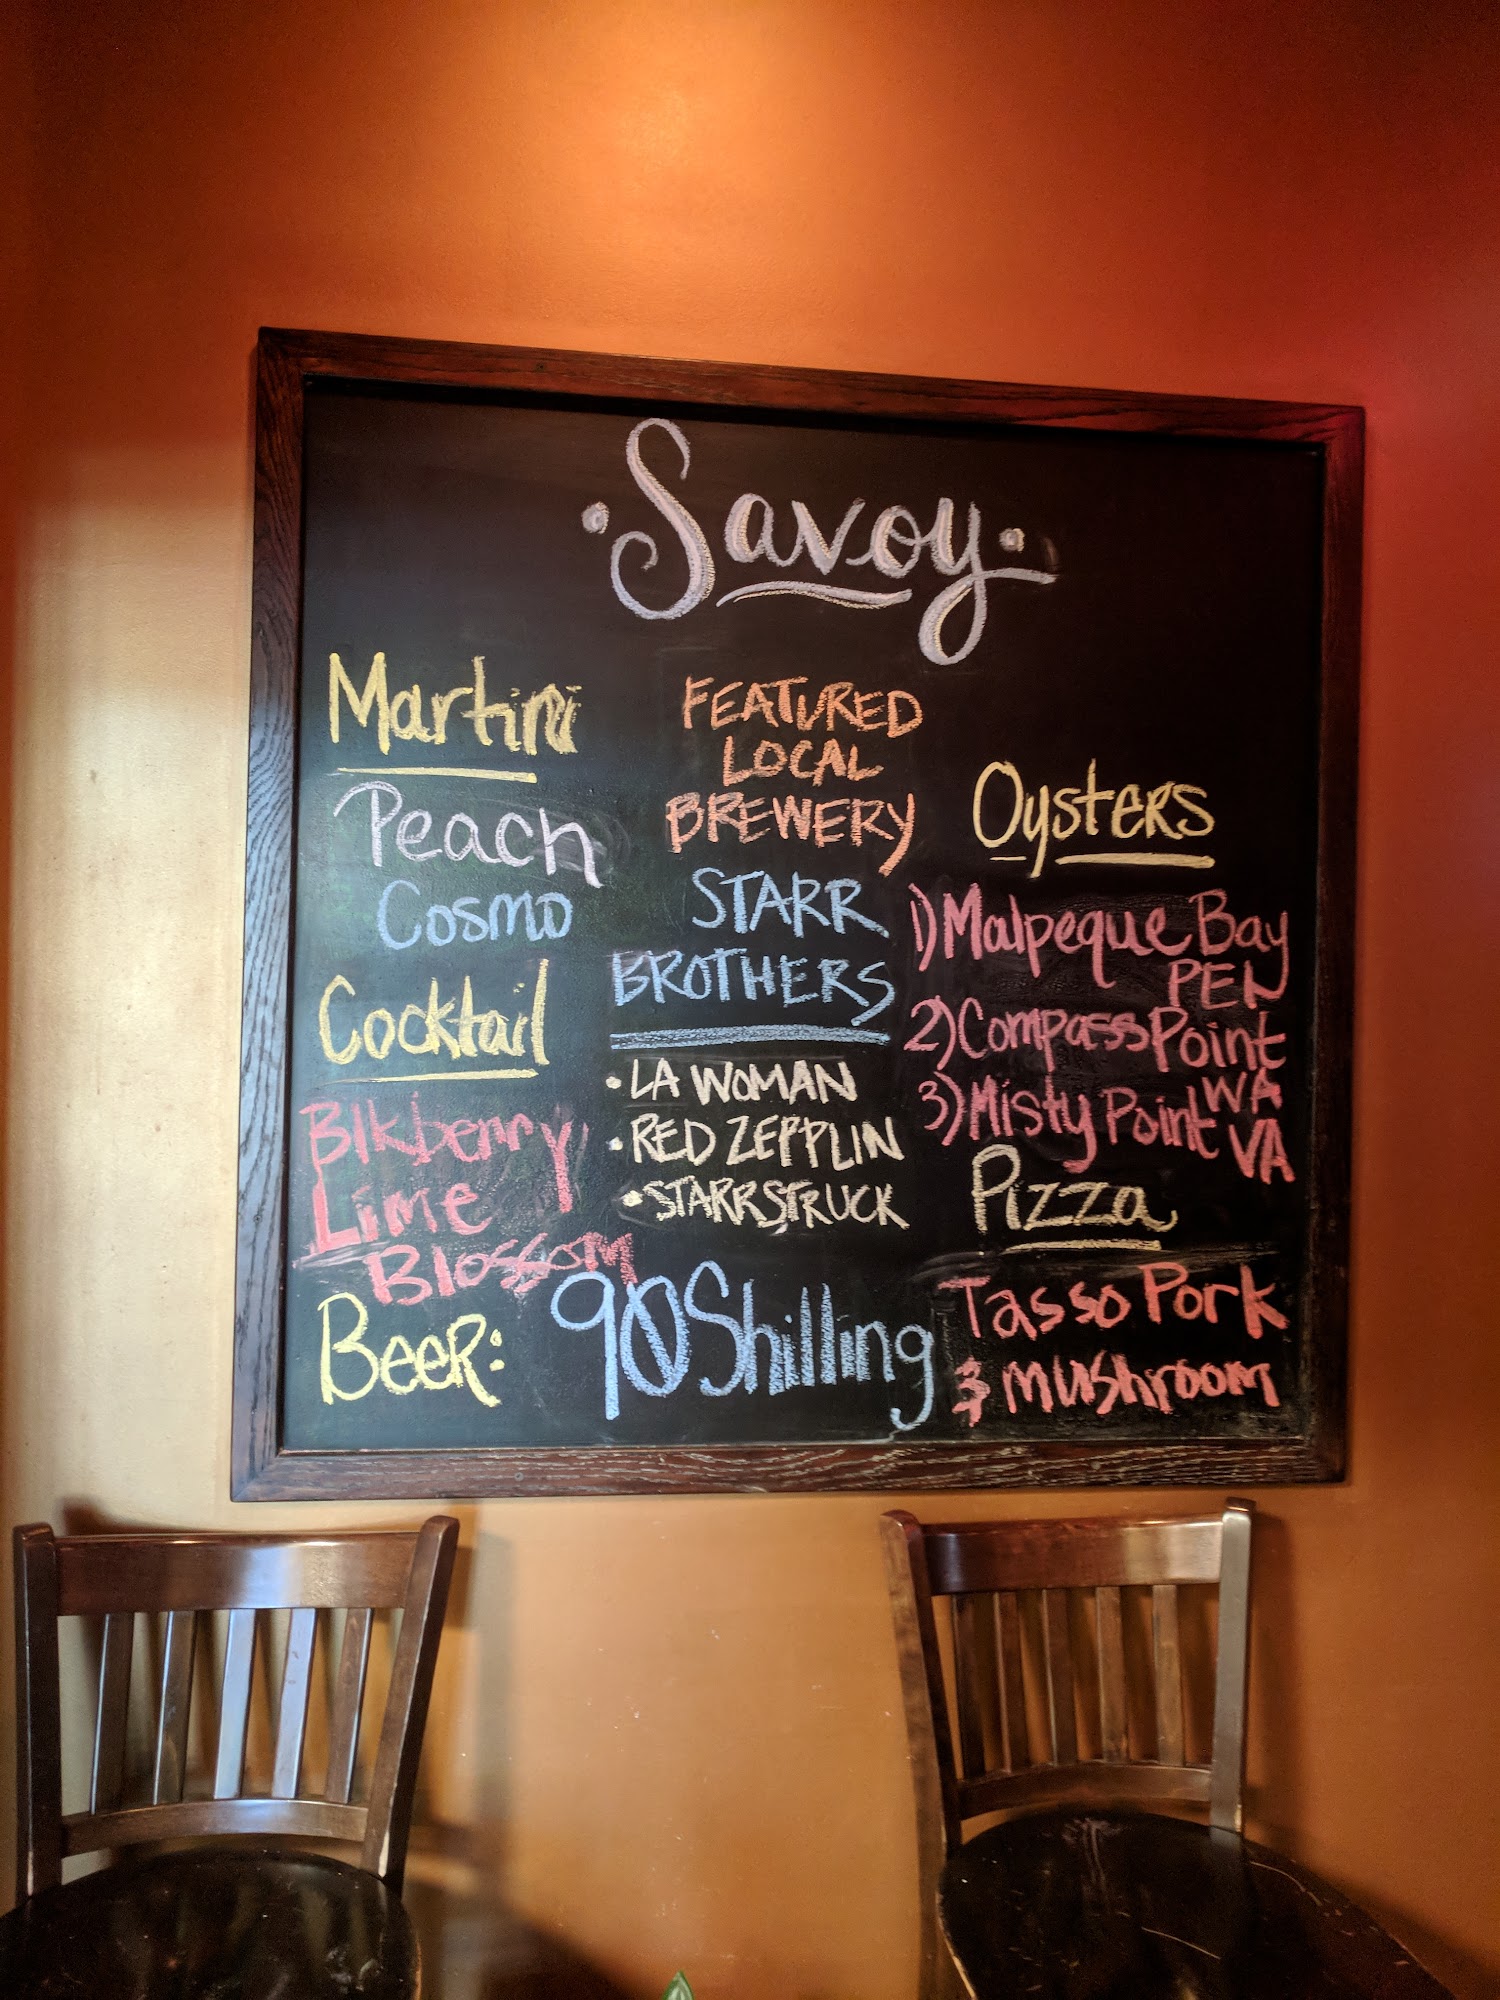 Savoy
Martini
Peach
Cosmo
Cocktail
Blkberry
Lime
Blossom
Beer: 90 Shilling
FEATURED
LOCAL
BREWERY
STARR
BROTHERS
• LA WOMAN
• RED ZEPPLIN
• STARRSTRUCK
Oysters
1) Malpeque Bay
PEI
2) Compass Point
WA
3) Misty Point VA
Pizza
Tasso Pork
& mushroom